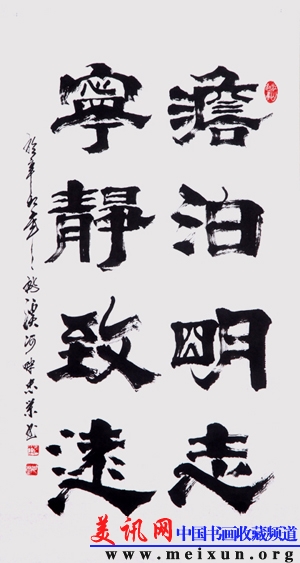 澹泊明志
寧靜致遠
美讯网 中国书画收藏频道
www.meixun.org